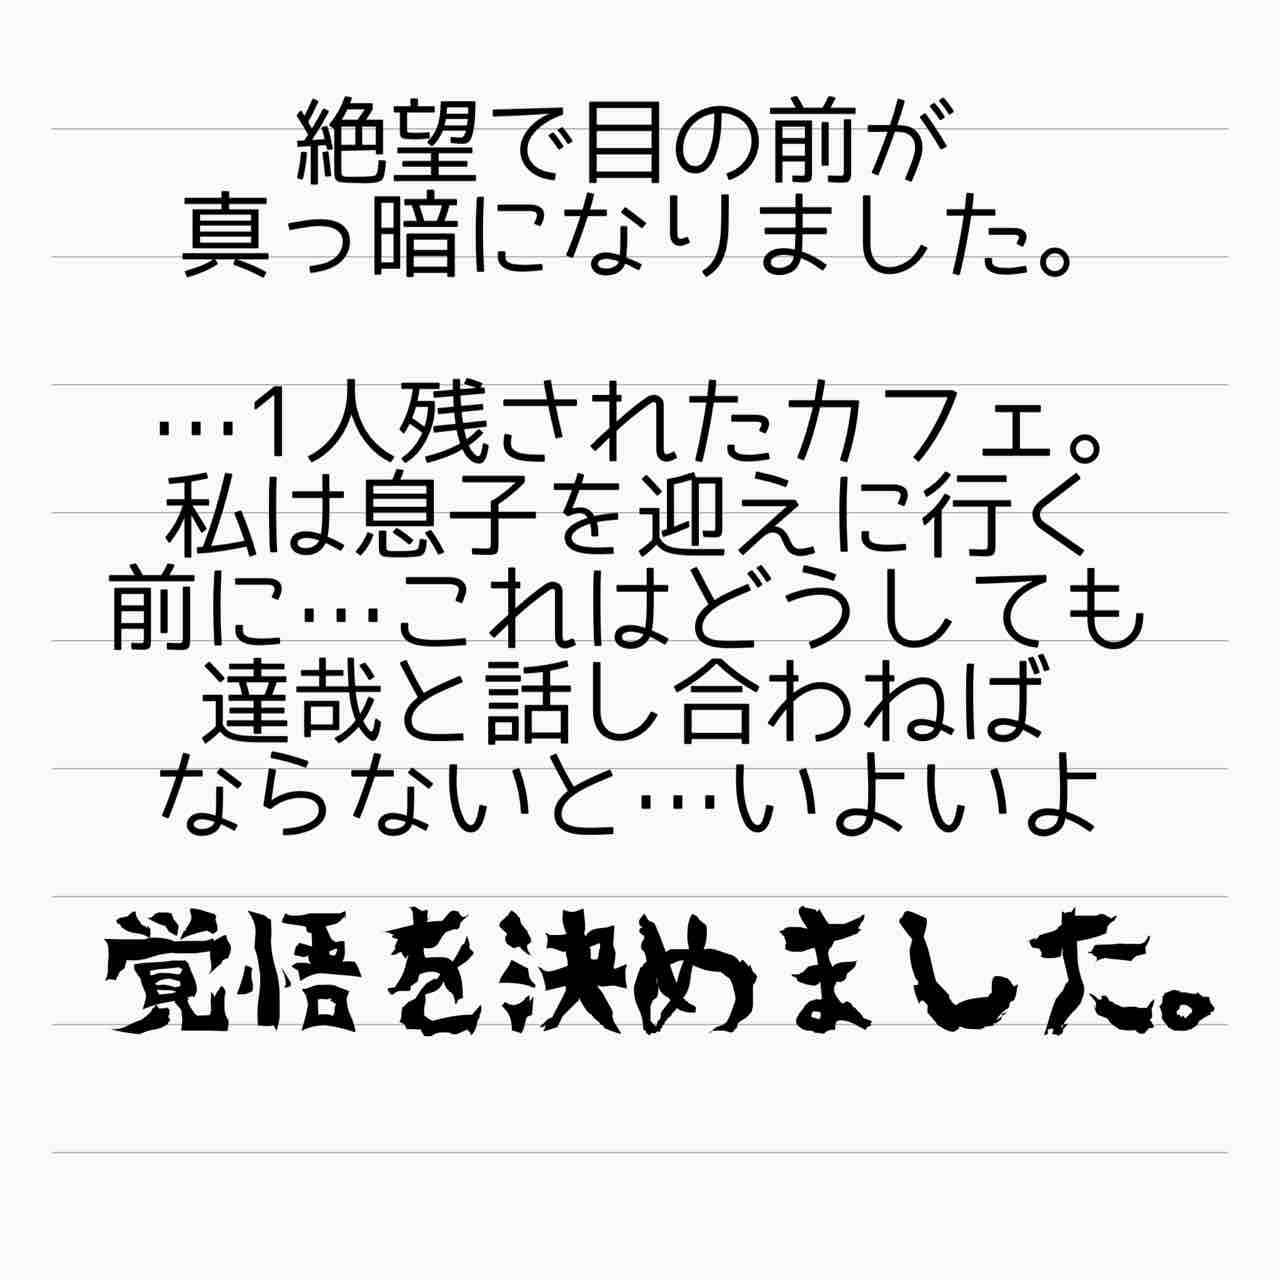 絶望で目の前が
真っ暗になりました。
…1人残されたカフェ。
私は息子を迎えに行く
前に…これはどうしても
達哉と話し合わねば
ならないと…いよいよ
覚悟を決めました。